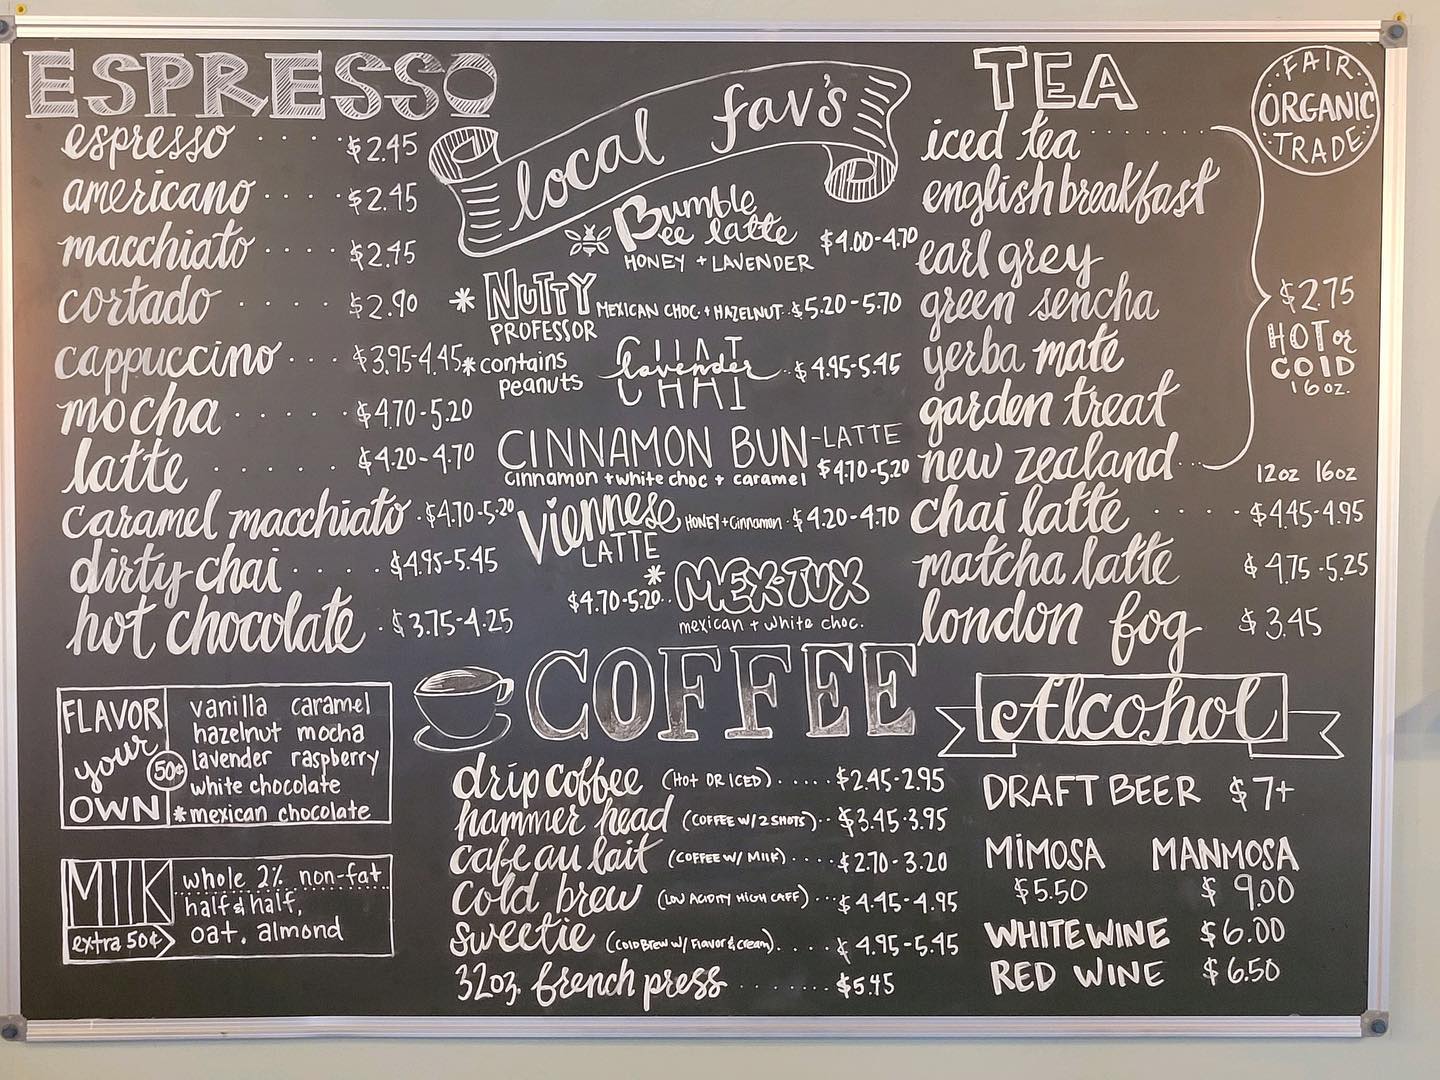 ESPRESSO
espresso $2.45
americano $2.45
macchiato $2.45
cortado $2.90
cappuccino $3.95-4.45
mocha $4.70-5.20
latte $4.20-4.70
caramel macchiato $4.70-5.20
dirty chai $4.95-5.45
hot chocolate $3.75-4.25
FLAVOR your OWN 50¢
vanilla caramel
hazelnut mocha
lavender raspberry
white chocolate
*mexican chocolate
MILK
extra 50¢
whole 2% non-fat
half & half,
oat, almond
local fav's
Bumble
Bee latte $4.00-4.70
HONEY + LAVENDER
* NUTTY
PROFESSOR
MEXICAN CHOC. + HAZELNUT $5.20-5.70
*contains
peanuts
lavender $4.95-5.45
CHAI
CINNAMON BUN-LATTE
cinnamon + white choc + caramel $4.70-5.20
Viennese
LATTE
HONEY + Cinnamon $4.20-4.70
* MEX-TUX
$4.70-5.20
mexican + white choc.
COFFEE
drip coffee (HOT OR ICED) $2.45-2.95
hammer head (COFFEE W/ 2 SHOTS) $3.45-3.95
cafe au lait (COFFEE W/ MIlK) $2.70-3.20
cold brew (LOW ACIDITY HIGH CAFF) $4.45-4.95
sweetie (Cold Brew w/ Flavor & cream) $4.95-5.45
32oz. french press $5.45
TEA
FAIR
ORGANIC
TRADE
iced tea
english breakfast
earl grey
green sencha
yerba mate
garden treat
new zealand
$2.75
HOT or
COLD
16oz.
12oz 16oz
chai latte $4.45-4.95
matcha latte $4.75-5.25
london fog $3.45
Alcohol
DRAFT BEER $7+
MIMOSA MANMOSA
$5.50 $9.00
WHITE WINE $6.00
RED WINE $6.50